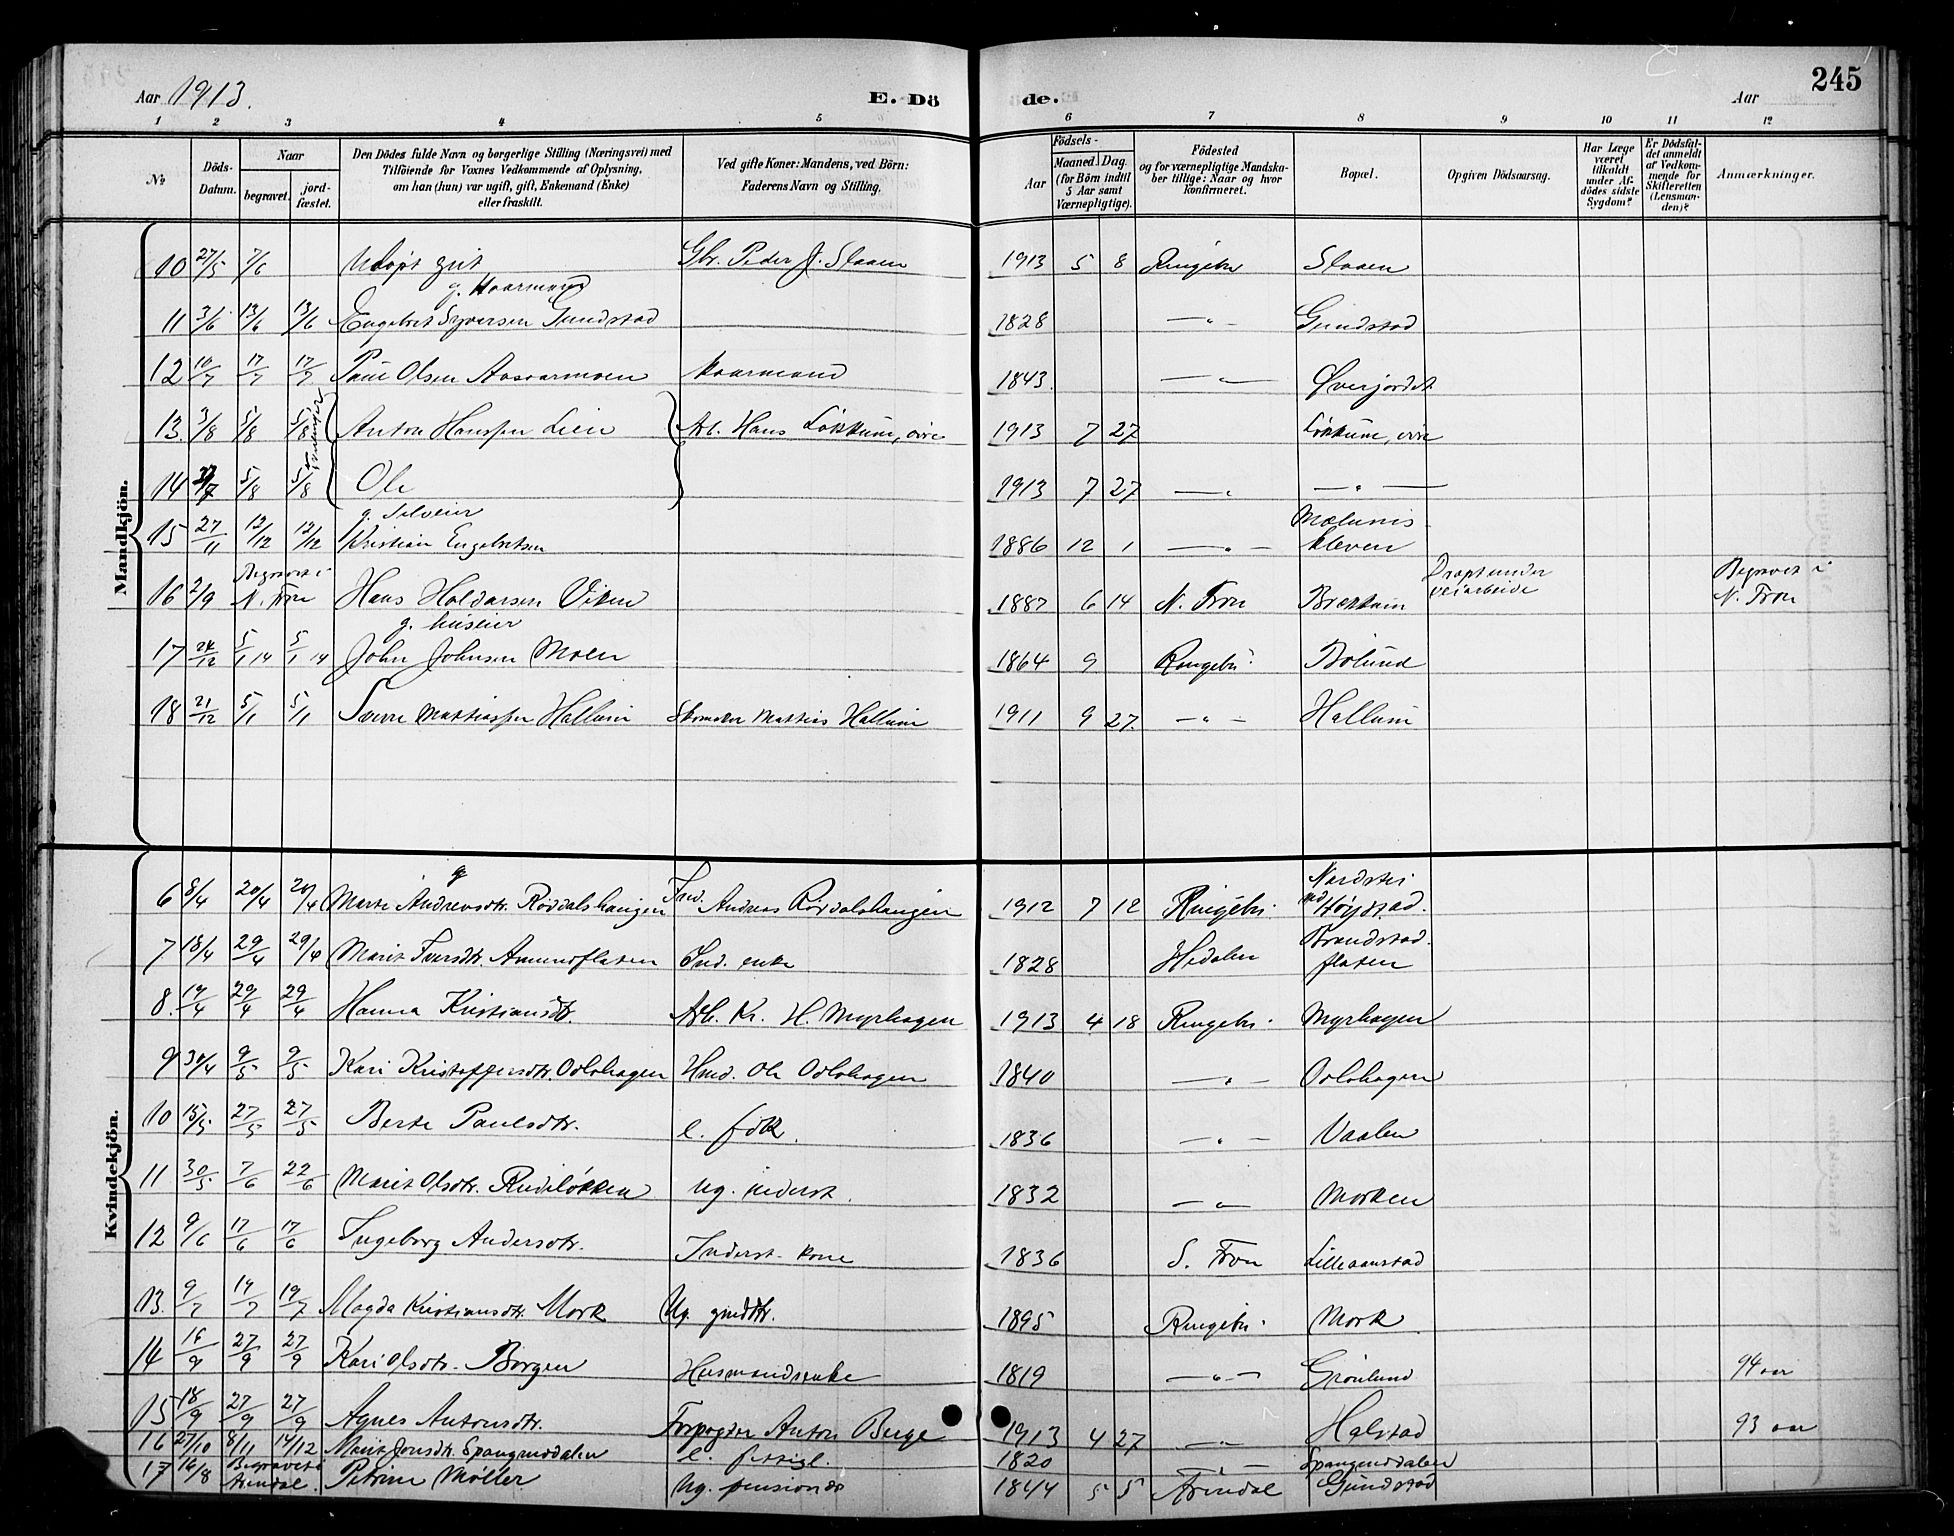 245
Aar 1913.
E. Dö
de.
Aar
1 2 3 4 5 6 7 8 9 10 11 12
№
Döds-Datum.
Naar
begravet.
jord-fæstet.
Den Dödes fulde Navn og borgerlige Stilling (Næringsvei) med
Tilföiende for Voxnes Vedkommende af Oplysning,
om han (hun) var ugift, gift, Enkemand (Enke)
eller fraskilt.
Ved gifte Koner: Mandens, ved Börn:
Faderens Navn og Stilling.
Födsels-
Aar
Maaned. Dag.
(for Börn indtil
5 Aar samt
Værnepligtige).
Födested
og for værnepligtige Mandska-
ber tillige: Naar og hvor
konfirmeret.
Bopæl.
Opgiven Dödsaarsag.
Har Læge
været
tilkaldt
under Af-
dödes sidste
Sygdom?
Er Dödsfal-
det anmeldt
af Vedkom-
mende for
Skifteretten
(Lensman-
den)?
Anmærkninger.
Mandkjön.
10 27/5 7/6 Udöpt gut Gbr. Peder J. Slaaen 1913 5 8 Ringebu Slaaen
g. Kaarmand
11 3/6 13/6 13/6 Engebret Syversen Gundstad 1828 —〃— Gundstad
12 10/7 17/7 17/7 Paul Olsen Aasaarmoen kaarmand 1843. —〃— Øverjordet
13. 3/8 5/8 5/8 Anton Hanssen Lien Arb. Hans Løkkum, øvre 1913 7 27 Løkkum, øvre
14 27/7 5/8 5/8 Ole 1913 7 27 —〃— —〃—
g. Selveier
15 27/11 12/12 12/12 Kristian Engebretsen 1886 12 1 —〃— Mælums kleven
16 2/9 Begravet i N. Fron Hans Haldorsen Viken 1887 6 14 N. Fron Brækkum Dræpt under veiarbeide Begravet i N. Fron
g. huseier
17 24/12 5/1 14 5/1 14 John Johnsen Moen 1864 9 Ringebu. Bolund
18 21/12 5/1 5/1 Sverre Mathiassen Hallum Skomaker Mathias Hallum 1911 9 27. —〃— Hallum
Kvindekjön.
g
6 8/4 20/4 20/4 Marte Andreasdtr. Røvdalshaugen Ind. Andreas Rövdalshaugen 1912 7 12 Ringebu. Nordstu ved Höystad.
7 18/4 29/4 29/4 Marit Iversdtr. Amundflaten Ind. enke 1828 Hedalen Brandstad-flaten
8. 19/4 29/4 29/4 Hanna Kristiansdtr. Arb. Kr. H. Myrhagen 1913 4 18 Ringebu. Myrhagen
9 30/4 9/5 9/5 Kari Kristoffersdtr. Odlohagen Hmd. Ole Odlohagen 1840 —〃— Odlohagen
10 15/5 27/5 27/5 Berte Paulsdtr. e. fdk. 1836 —〃— Vaalen
11. 30/5 7/6 22/6 Marit Olsdtr. Rudiløkken ug. inderst. 1832 —〃— Morken
12 9/6 17/6 17/6 Ingeborg Andersdtr. Inderst. kone 1836 S. Fron Lilleaanstad
13. 9/7 19/7 19/7 Magda Kristiansdtr. Mork Ug. gmddtr. 1895 Ringebu. Mork
14 16/9 27/9 27/9 Kari Olsdtr. Borgen Husmandsenke 1819 —〃— Grönlund 94 aar
15 18/9 27/9 27/9 Agnes Antonsdtr. Forpagter Anton Berge 1913 4 27 —〃— Halstad 93 aar
16 27/10 8/11 14/12 Marit Jonsdtr. Spangruddalen e. fattigl. 1820 —〃— Spangruddalen
17 16/8 Begravet i Arendal. Petrine Möller Ug. pensionær 1844 5 5 Arendal Gundstad